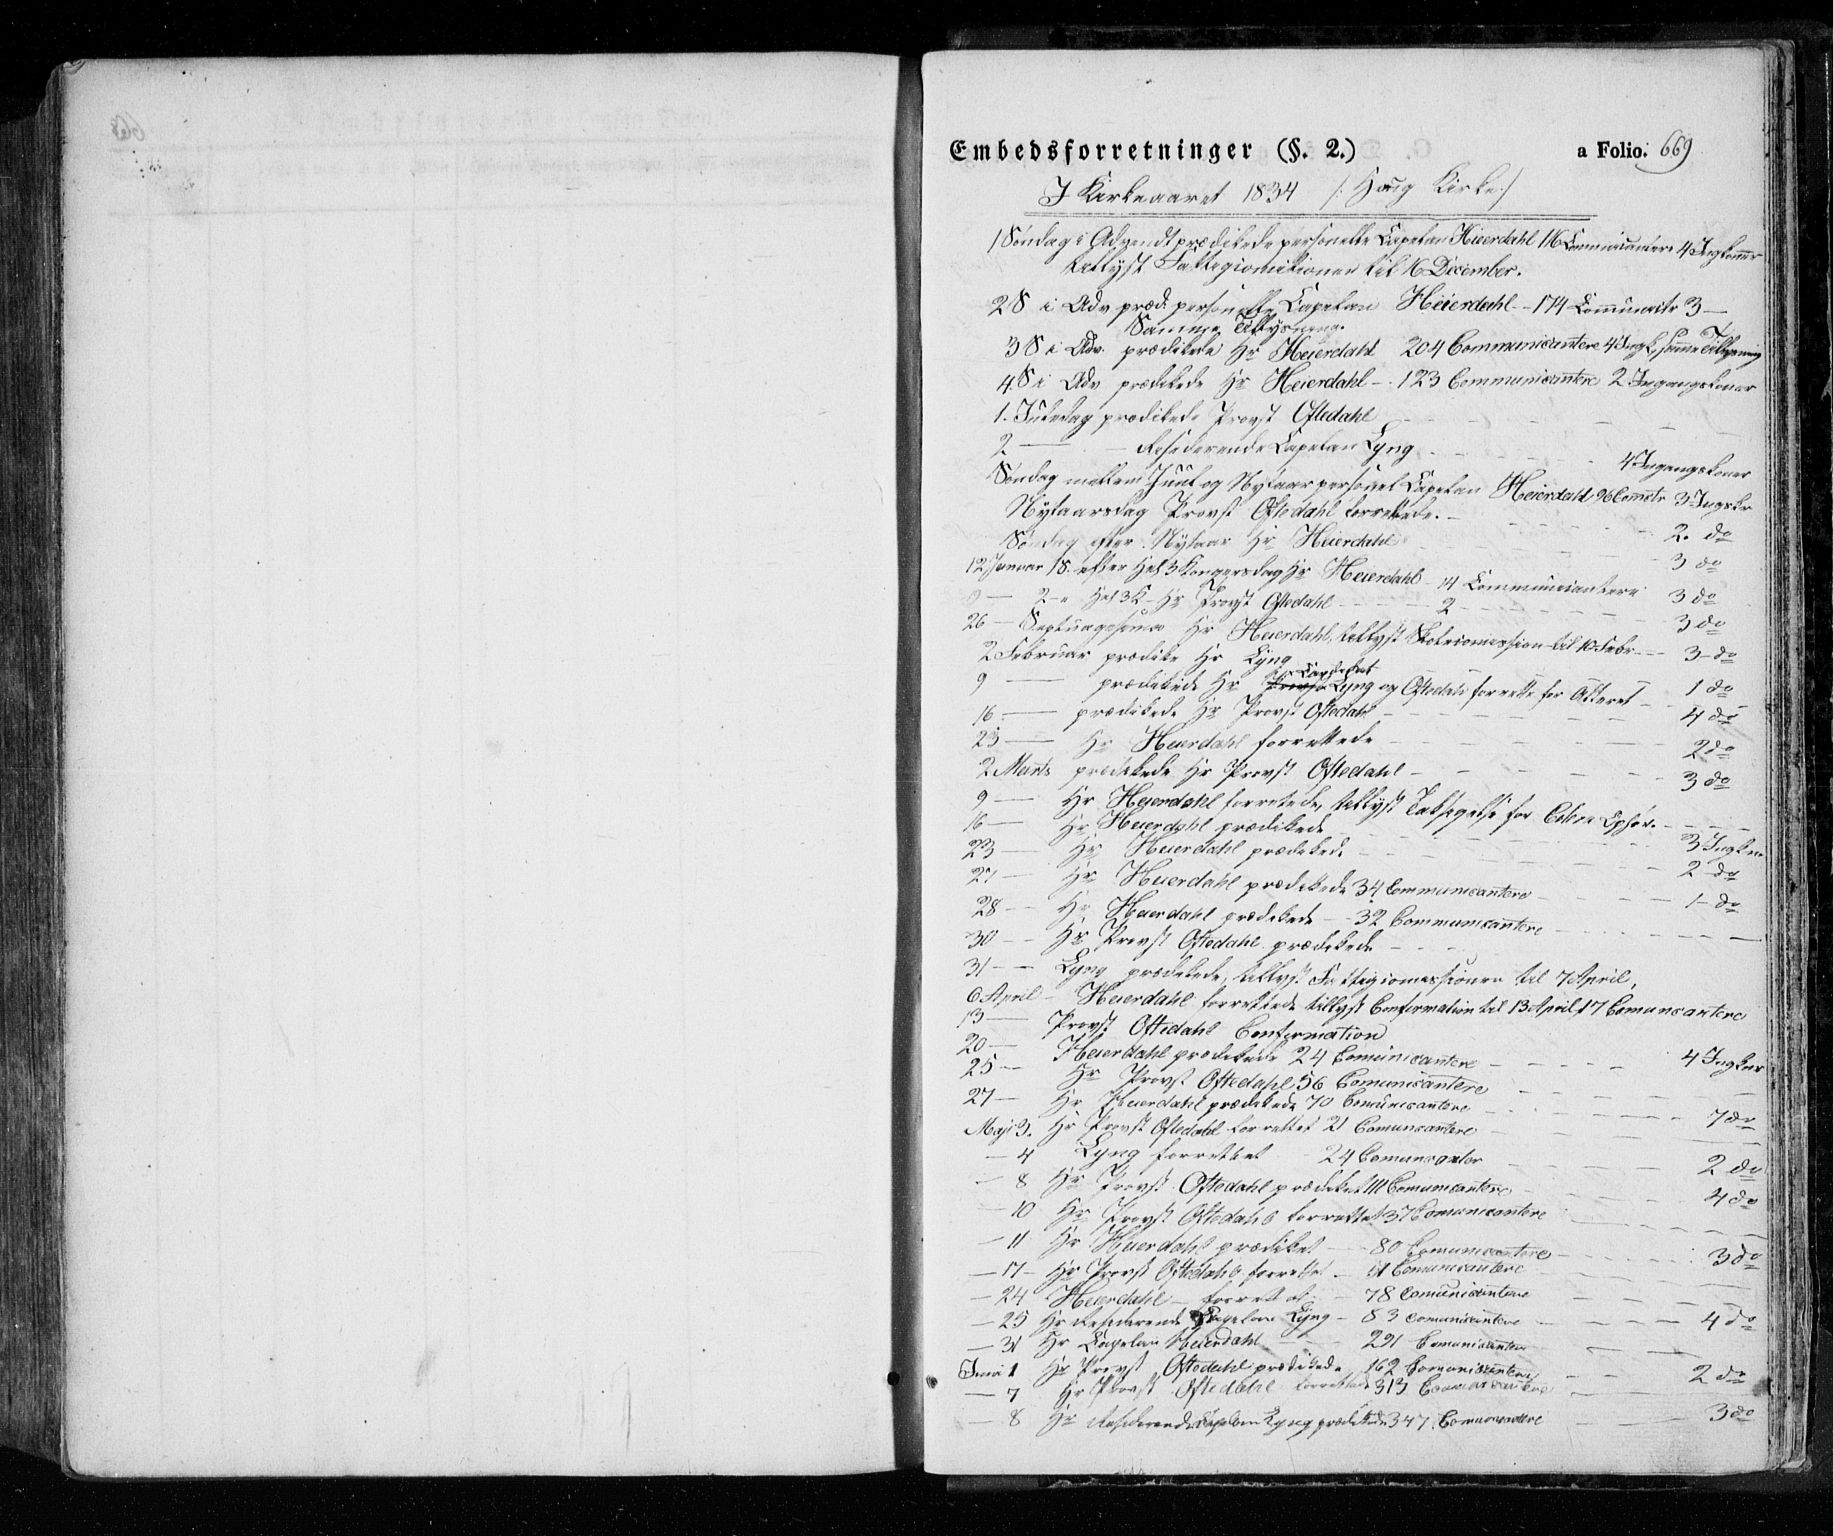 Embedsforretninger (§. 2.) a Folio. 669
I Kirkeaaret 1834 /: Haug Kirke :/
1 Søndag i Advendt prædikede personelle Capelan Heierdahl 116 Communicantere 4 Ingkoner
tillyst Fattigcomitionen til 16 December.
2 S i Adv præd. personelle Capelan Heierdahl - 174 Communictr 3 —
Samme Tillysning.
3 S i Adv. prædikede Hr Heierdahl 204 Communicantere 4 Ingk. samme Tillysning
4 S i Adv prædikede Hr Heierdahl - 123 Communicantere 2 Ingangskoner
1. Juledag prædikede Provst Oftedahl
2 — — Residerende Capelan Lyng 4 Ingangskoner
Søndag mellem Juul og Nytaar personel Capelan Heierdahl 96 Comctr 3 Ingskr
Nytaarsdag Provst Oftedahl forrettede.
Søndag efter Nytaar Hr Heierdahl 2. do
12 Januar 1 S. efter Hel 3 Kongersdag Hr Heierdahl - 14 Communicantere 3 do
— 2 - e Hel 3 K - Hr Provst Oftedahl 2 3 do
26 — Septuagesima Hr Heierdahl, tillyst Skolecomission til 10 Febr - 3 do
2 Februar prædike Hr Lyng 3 do
9 — prædikede Hr Lyng og Oftedahl forrette for Alteret - 1 do
16 — prædikede Hr Provst Oftedahl 4 do
23 — Hr Heierdahl forrettede 2 do
2 Marts prædikede Hr Provst Oftedahl 3 do
9 — Hr Heierdahl forrettede, tillyst Taksigelse for Ophør.
16 — Hr Heierdahl prædikede
23 — Hr Heierdahl prædikede 3 Ingkn
27 — Hr Heierdahl prædikede 34 Communicantere 2 do
28 — Hr Heierdahl prædikede - 32 Communicantere 1 do
30 — Hr Provst Oftedahl prædikede
31 — Lyng prædikede, tillyst Fattigcomissionen til 7 April,
6 April - Heierdahl forrettede tillyst Confirmation til 13 April, 17 Comunicantere
13 — Provst Oftedahl Confirmation
20 — Heierdahl prædikede 24 Comunicantere 4 Ingkner
25 — Hr Provst Oftedahl 56 Comunicantere
27 — Hr Heierdahl prædikede 70 Comunicantere 7 do
Maji 3. Hr Provst Oftedahl forrettet 21 Comunicantere
— 4 Lyng forrettet - 24 Comunicanter 2 do
— 8 Hr Provst Oftedahl prædiket 111 Comunicantere 4 do
— 10 Hr Provst Oftedahl forrettet 37 Comunicantere
— 11 Hr Heierdahl prædiket - 80 Comunicantere 3 do
— 17 - Hr Provst Oftedahl forrettet - Comunicantere
— 24 Heierdahl - forrettet - 78 Comunicantere
— 25 Hr Residerende Capelan Lyng - 83 Comunicantere 4 do
— 31 Hr Capelan Heierdahl 291 Comunicantere
Juni 1 Hr Provst Oftedahl prædikede 162 Comunicantere 2 do
— 7 Hr Provst Oftedahl forrettede 313 Comunicantere
— 8 Hr Residerende Capelan Lyng prædikede 347 Comunicantere 3 do